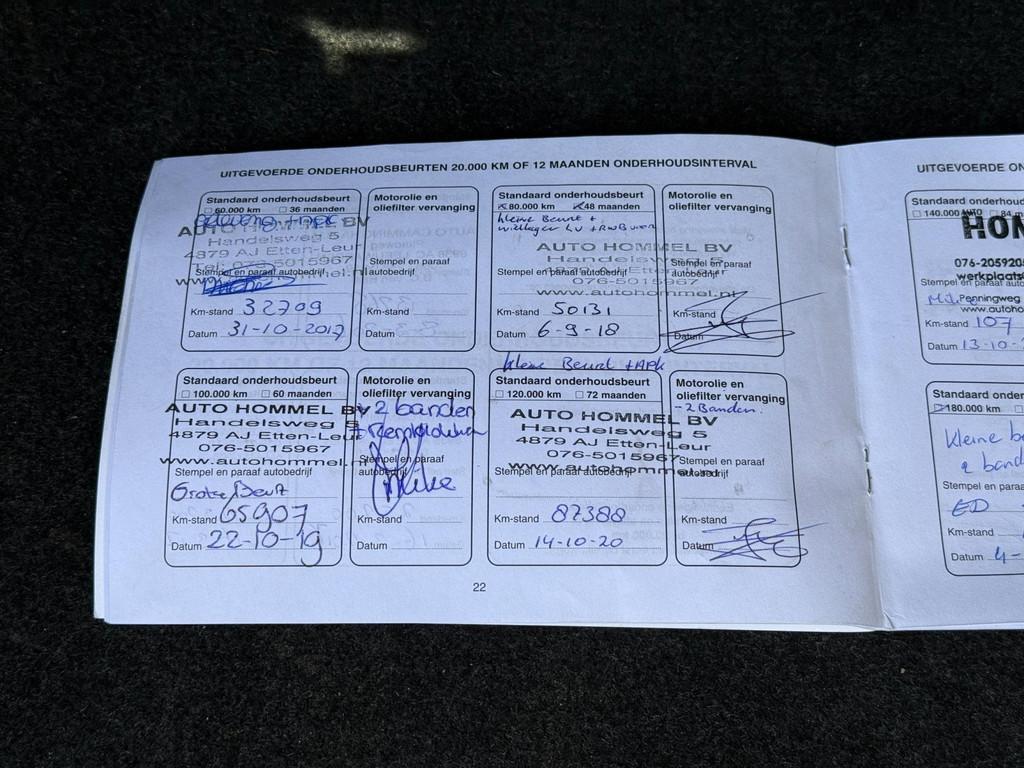 UITGEVOERDE ONDERHOUDSBEURTEN 20.000 KM OF 12 MAANDEN ONDERHOUDSINTERVAL
Standaard onderhoudsbeurt
60.000 km 36 maanden
+ APK
AUTO HOMMEL BV
Handelsweg 5
4879 AJ Etten-Leur
Tel: 076-5015967
Stempel en paraaf autobedrijf
Km-stand 32709
Datum 31-10-2017
Motorolie en
oliefilter vervanging
Stempel en paraaf
autobedrijf
Km-stand
Datum
Standaard onderhoudsbeurt
80.000 km 48 maanden
kleine Beurt +
wiellager LV +
AUTO HOMMEL BV
Handelsweg 5
Stempel en paraaf autobedrijf
076-5015967
www.autohommel.nl
Km-stand 50131
Datum 6-9-18
Motorolie en
oliefilter vervanging
Stempel en paraaf
autobedrijf
Km-stand
Datum
Standaard onderhoudsbeurt
100.000 km 60 maanden
AUTO HOMMEL BV
Handelsweg 5
4879 AJ Etten-Leur
076-5015967
www.autohommel.nl
Stempel en paraaf autobedrijf
Grote Beurt
Km-stand 65907
Datum 22-10-19
Motorolie en
oliefilter vervanging
+ 2 banden
Stempel en paraaf
autobedrijf
Km-stand
Datum
kleine Beurt + APK
Standaard onderhoudsbeurt
120.000 km 72 maanden
AUTO HOMMEL BV
Handelsweg 5
4879 AJ Etten-Leur
076-5015967
www.autohommel.nl
Stempel en paraaf autobedrijf
Km-stand 87388
Datum 14-10-20
Motorolie en
oliefilter vervanging
- 2 Banden.
Stempel en paraaf
autobedrijf
Km-stand
Datum
22
UITGEVOERDE ON
Standaard onde
140.000 84 m
AUTO
HOM
076-205920
werkplaats
Stempel en paraaf auto
Penningweg
www.autoho
Km-stand 107
Datum 13-10-
Standaard onder
180.000 km
Kleine b
2 band
Stempel en para
ED
Km-stand
Datum 4-